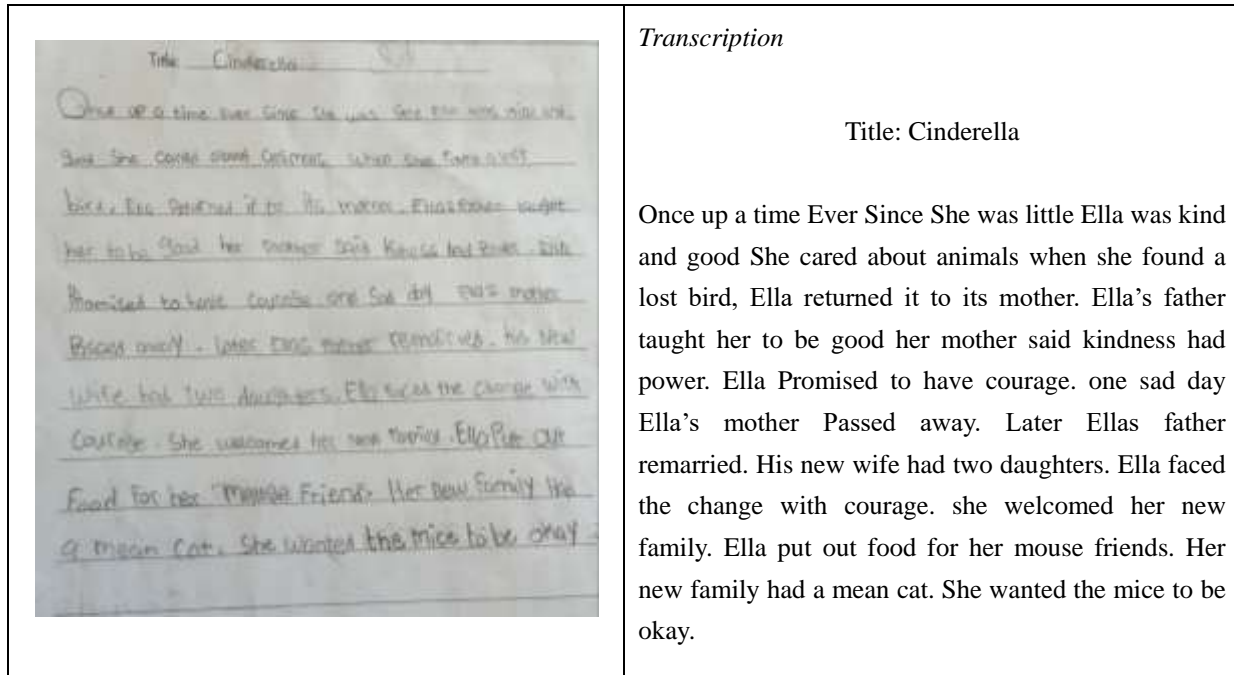 Title Cinderella
Once up a time ever Since She was Ella was and
good She cared about when she a lost
bird, Ella returned it to its mother. Ella's father taught
her to be good her mother said had Power. Ella
Promised to have courage one Sad day Ella's mother
Passed away. Later father remarried. his new
wife had two daughters. Ella faced the change with
Courage. She welcomed her new family. Ella Put out
Food For her Friends. Her new family the
a mean cat. She wanted the mice to be okay.
Transcription
Title: Cinderella
Once up a time Ever Since She was little Ella was kind
and good She cared about animals when she found a
lost bird, Ella returned it to its mother. Ella’s father
taught her to be good her mother said kindness had
power. Ella Promised to have courage. one sad day
Ella’s mother Passed away. Later Ellas father
remarried. His new wife had two daughters. Ella faced
the change with courage. she welcomed her new
family. Ella put out food for her mouse friends. Her
new family had a mean cat. She wanted the mice to be
okay.